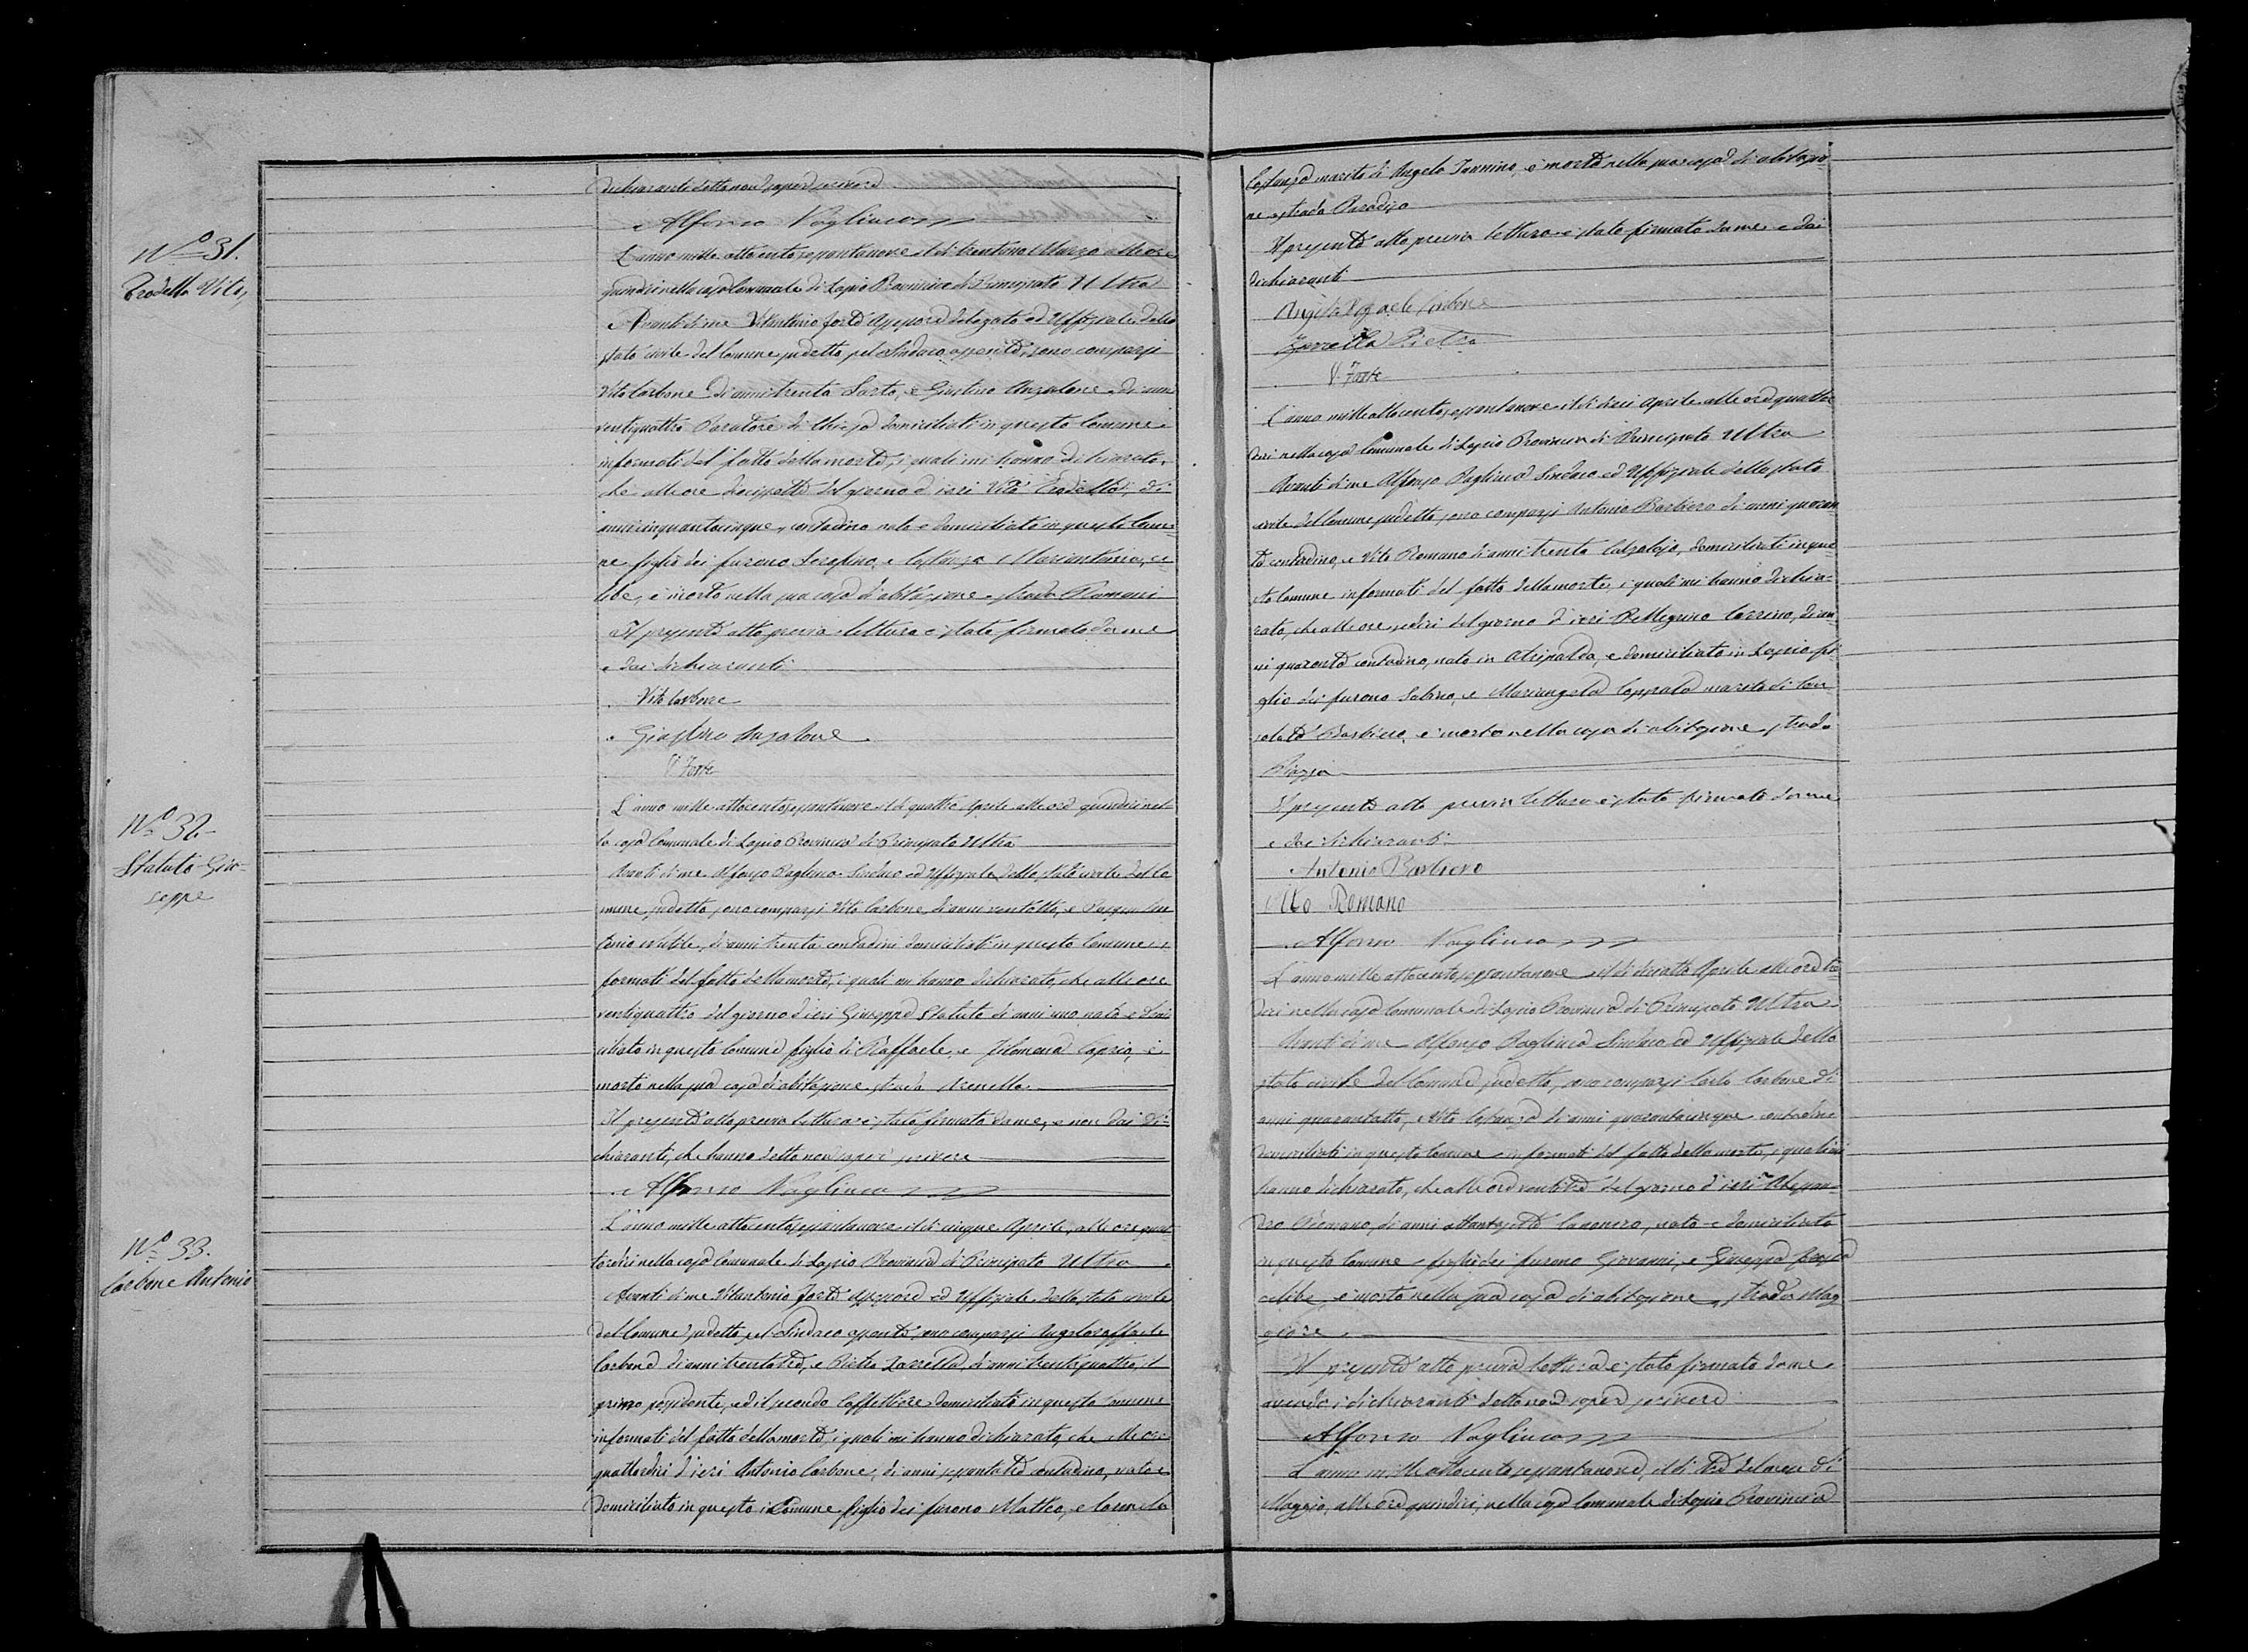 N.º 31.
Prodella Vito,
dichiarante detto non saper scrivere
Alfonso Pagliuca
L'anno mille ottocento sessantanove il dì trentuno Marzo alle ore
quindici nella casa Comunale di Lapio Provincia di Principato Ultra
Avanti di me Vitantonio Forte Assessore delegato ed Uffiziale dello
stato civile del Comune sudetto pel Sindaco assente, sono comparsi
Vito Carbone di anni trenta Sarto, e Giustino Anzalone di anni
ventiquattro Paratore di Chiesa domiciliati in questo Comune
informati del fatto della morte, i quali mi hanno dichiarato,
che alle ore diecissette del giorno d'ieri Vito Prodella, di
anni cinquantacinque, contadino nato e domiciliato in questo Comu-
ne figlio dei furono Serafino, e Costanza Mariantonia, ce-
libe, è morto nella sua casa d'abitazione strada Romani
Il presente atto previa lettura è stato firmato da me
e dai dichiaranti
Vito Carbone
Giustino Anzalone
V. Forte
N.º 32
Statuto Giu-
seppe
L'anno mille ottocento sessantanove il dì quattro Aprile alle ore quindici nel
la casa Comunale di Lapio Provincia di Principato Ultra
Avanti di me Alfonso Pagliuca Sindaco ed Uffiziale dello stato civile del Co
mune sudetto, sono comparsi Vito Carbone di anni ventotto, e Pasquale An
tonio Nubile, di anni trenta contadini domiciliati in questo Comune in
formati del fatto della morte, i quali mi hanno dichiarato, che alle ore
ventiquattro del giorno d'ieri Giuseppe Statuto di anni uno nato e domi
ciliato in questo Comune figlio di Raffaele, e Filomena Caprio, è
morto nella sua casa di abitazione strada Arenella
Il presente atto previa lettura è stato firmato da me, e non dai di-
chiaranti, che hanno detto non saper scrivere
Alfonso Pagliuca
N.º 33.
Carbone Antonio
L'anno mille ottocento sessantanove il dì cinque Aprile, alle ore quat
tordici nella casa Comunale di Lapio Provincia di Principato Ultra
Avanti di me Vitantonio Forte Assessore ed Uffiziale dello stato civile
del Comune sudetto, pel Sindaco assente, sono comparsi Angeloraffaele
Carbone di anni trentatre, e Pietro Zarrella, di anni trentiquattro, il
primo possidente, ed il secondo Caffettiere domiciliati in questo Comune
informati del fatto della morte, i quali mi hanno dichiarato, che alle ore
quattordici d'ieri Antonio Carbone, di anni sessantatre contadino, nato e
domiciliato in questo Comune figlio dei furono Matteo, e Carmela
Costanza marito di Angela Iannino, è morto nella sua casa di abitazio
ne strada Paradiso
Il presente atto previa lettura è stato firmato da me e dai
dichiaranti
Angelo Rafaele Carbone
Zarrella Pietro
V. Forte
L'anno mille ottocento sessantanove il dì dieci Aprile alle ore quattor
dici nella casa Comunale di Lapio Provincia di Principato Ultra
Avanti di me Alfonso Pagliuca Sindaco ed Uffiziale dello stato
civile del Comune sudetto, sono comparsi Antonio Barbiero di anni quaran
ta contadino, e Vito Romano di anni trenta Calzolajo, domiciliati in que
sto Comune informati del fatto della morte, i quali mi hanno dichia-
rato, che alle ore sedici del giorno d'ieri Pellegrino Carrino, di an
ni quaranta contadino, nato in Atripalda, e domiciliato in Lapio fi-
glio dei furono Sabino, e Mariangela Capprald marito di Con
cetta Barbiero, è morto nella casa di abitazione strada
Piazza
Il presente atto previa lettura è stato firmato da me
e dai dichiaranti
Antonio Barbiero
Vito Romano
Alfonso Pagliuca
L'anno mille ottocento sessantanove il dì diciotto Aprile alle ore tre
dici nella casa Comunale di Lapio Provincia di Principato Ultra
Avanti di me Alfonso Pagliuca Sindaco ed Uffiziale dello
stato civile del Comune sudetto, sono comparsi Carlo Carbone di
anni quarantotto, e Vito Costanza di anni quarantacinque contadini
domiciliati in questo Comune informati del fatto della morte, i quali mi
hanno dichiarato, che alle ore ventitre del giorno d'ieri Alessan-
dro Romano, di anni settantasette, nato e domiciliato
in questo Comune figlio dei furono Giovanni, e Giuseppa
celibe, è morto nella sua casa di abitazione, strada Mag
giore
Il presente atto previa lettura è stato firmato da me
avendo i dichiaranti detto non saper scrivere
Alfonso Pagliuca
L'anno mille ottocento sessantanove, il dì tre del mese di
Maggio, alle ore quindici, nella casa Comunale di Lapio Provincia